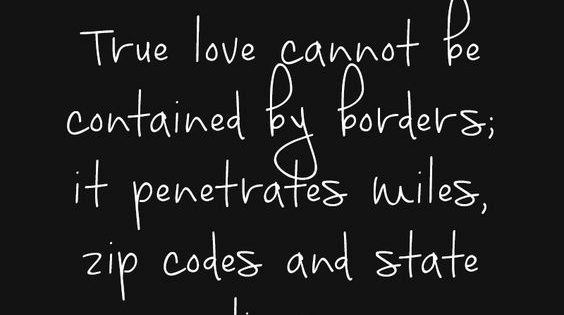 True love cannot be
contained by borders;
it penetrates miles,
zip codes and state